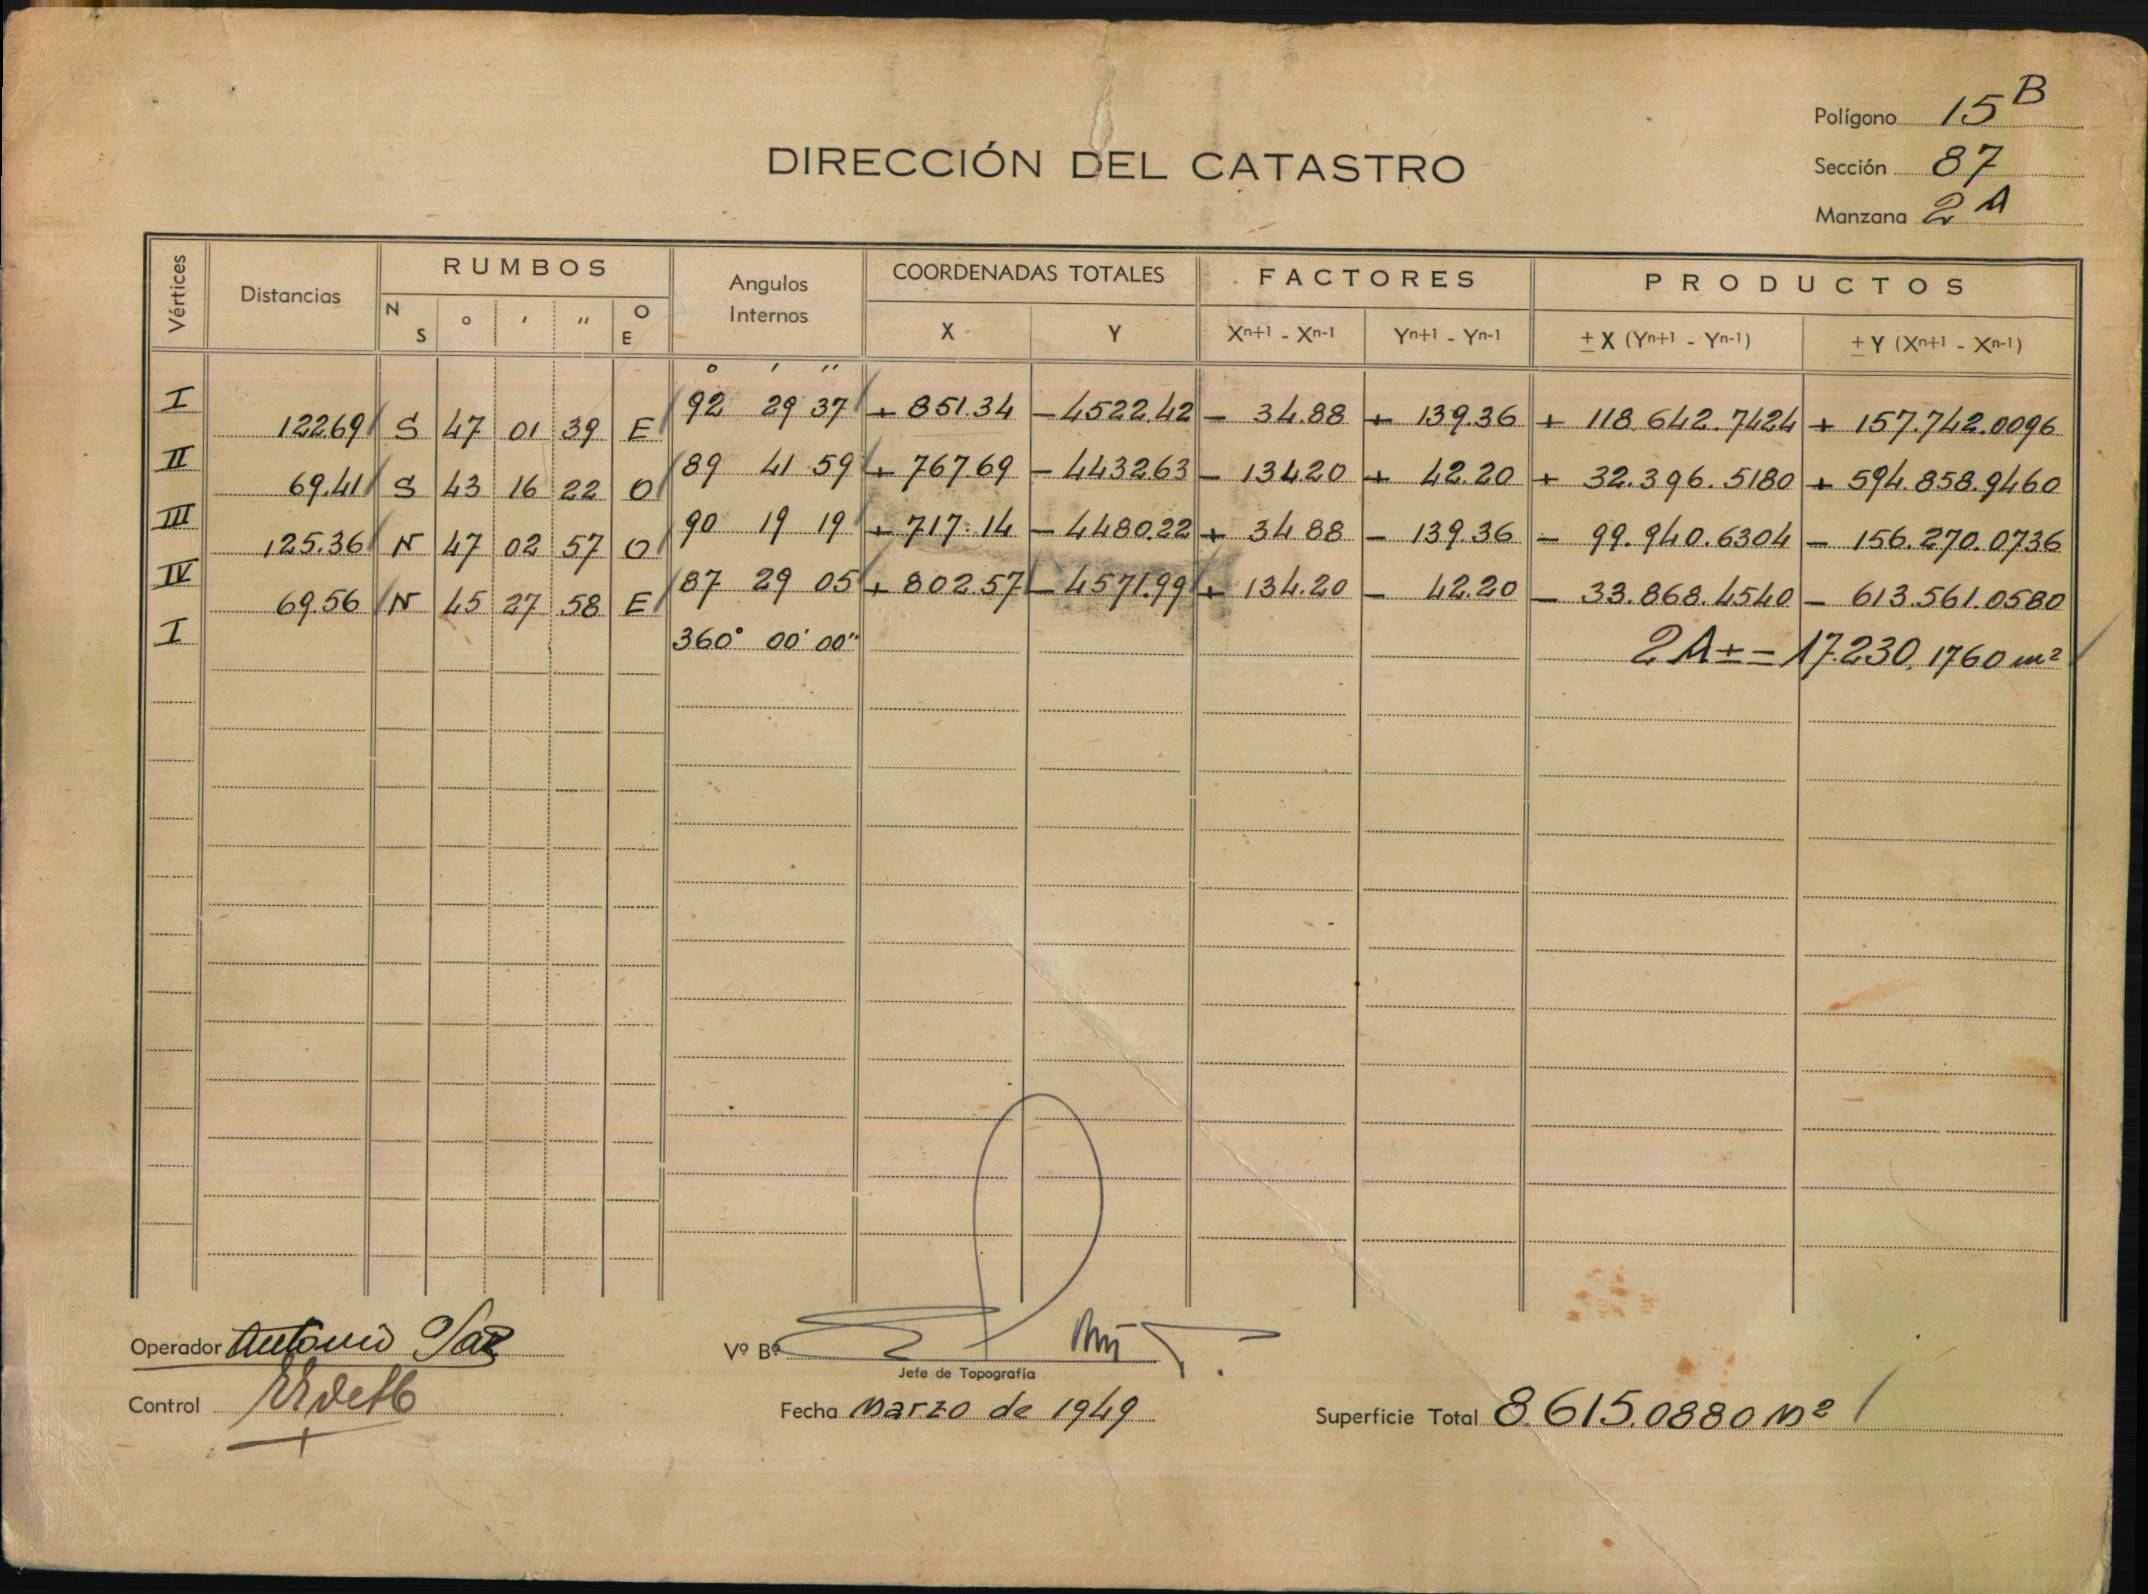 Polígono 15 B
DIRECCIÓN DEL CATASTRO
Sección 87
Manzana 2 A
Vértices Distancias RUMBOS Angulos Internos COORDENADAS TOTALES FACTORES PRODUCTOS
N S ° ' " O E X Y Xn+1 - Xn-1 Yn+1 - Yn-1 ± X (Yn+1 - Yn-1) ± Y (Xn+1 - Xn-1)
° ' "
I 92 29 37 + 851.34 - 4522.42 - 34.88 + 139.36 + 118.642.7424 + 157.742.0096
122.69 S 47 01 39 E
II 89 41 59 + 767.69 - 4432.63 - 134.20 + 42.20 + 32.396.5180 + 594.858.9460
69.41 S 43 16 22 O
III 90 19 19 + 717.14 - 4480.22 + 34.88 - 139.36 - 99.940.6304 - 156.270.0736
125.36 N 47 02 57 O
IV 87 29 05 + 802.57 - 4571.99 + 134.20 - 42.20 - 33.868.4540 - 613.561.0580
69.56 N 45 27 58 E
I 360° 00' 00" 2A ± = 17.230,1760 m²
Operador Antonio
Vº Bº
Jefe de Topografía
Control
Fecha Marzo de 1949
Superficie Total 8.615.0880 m²